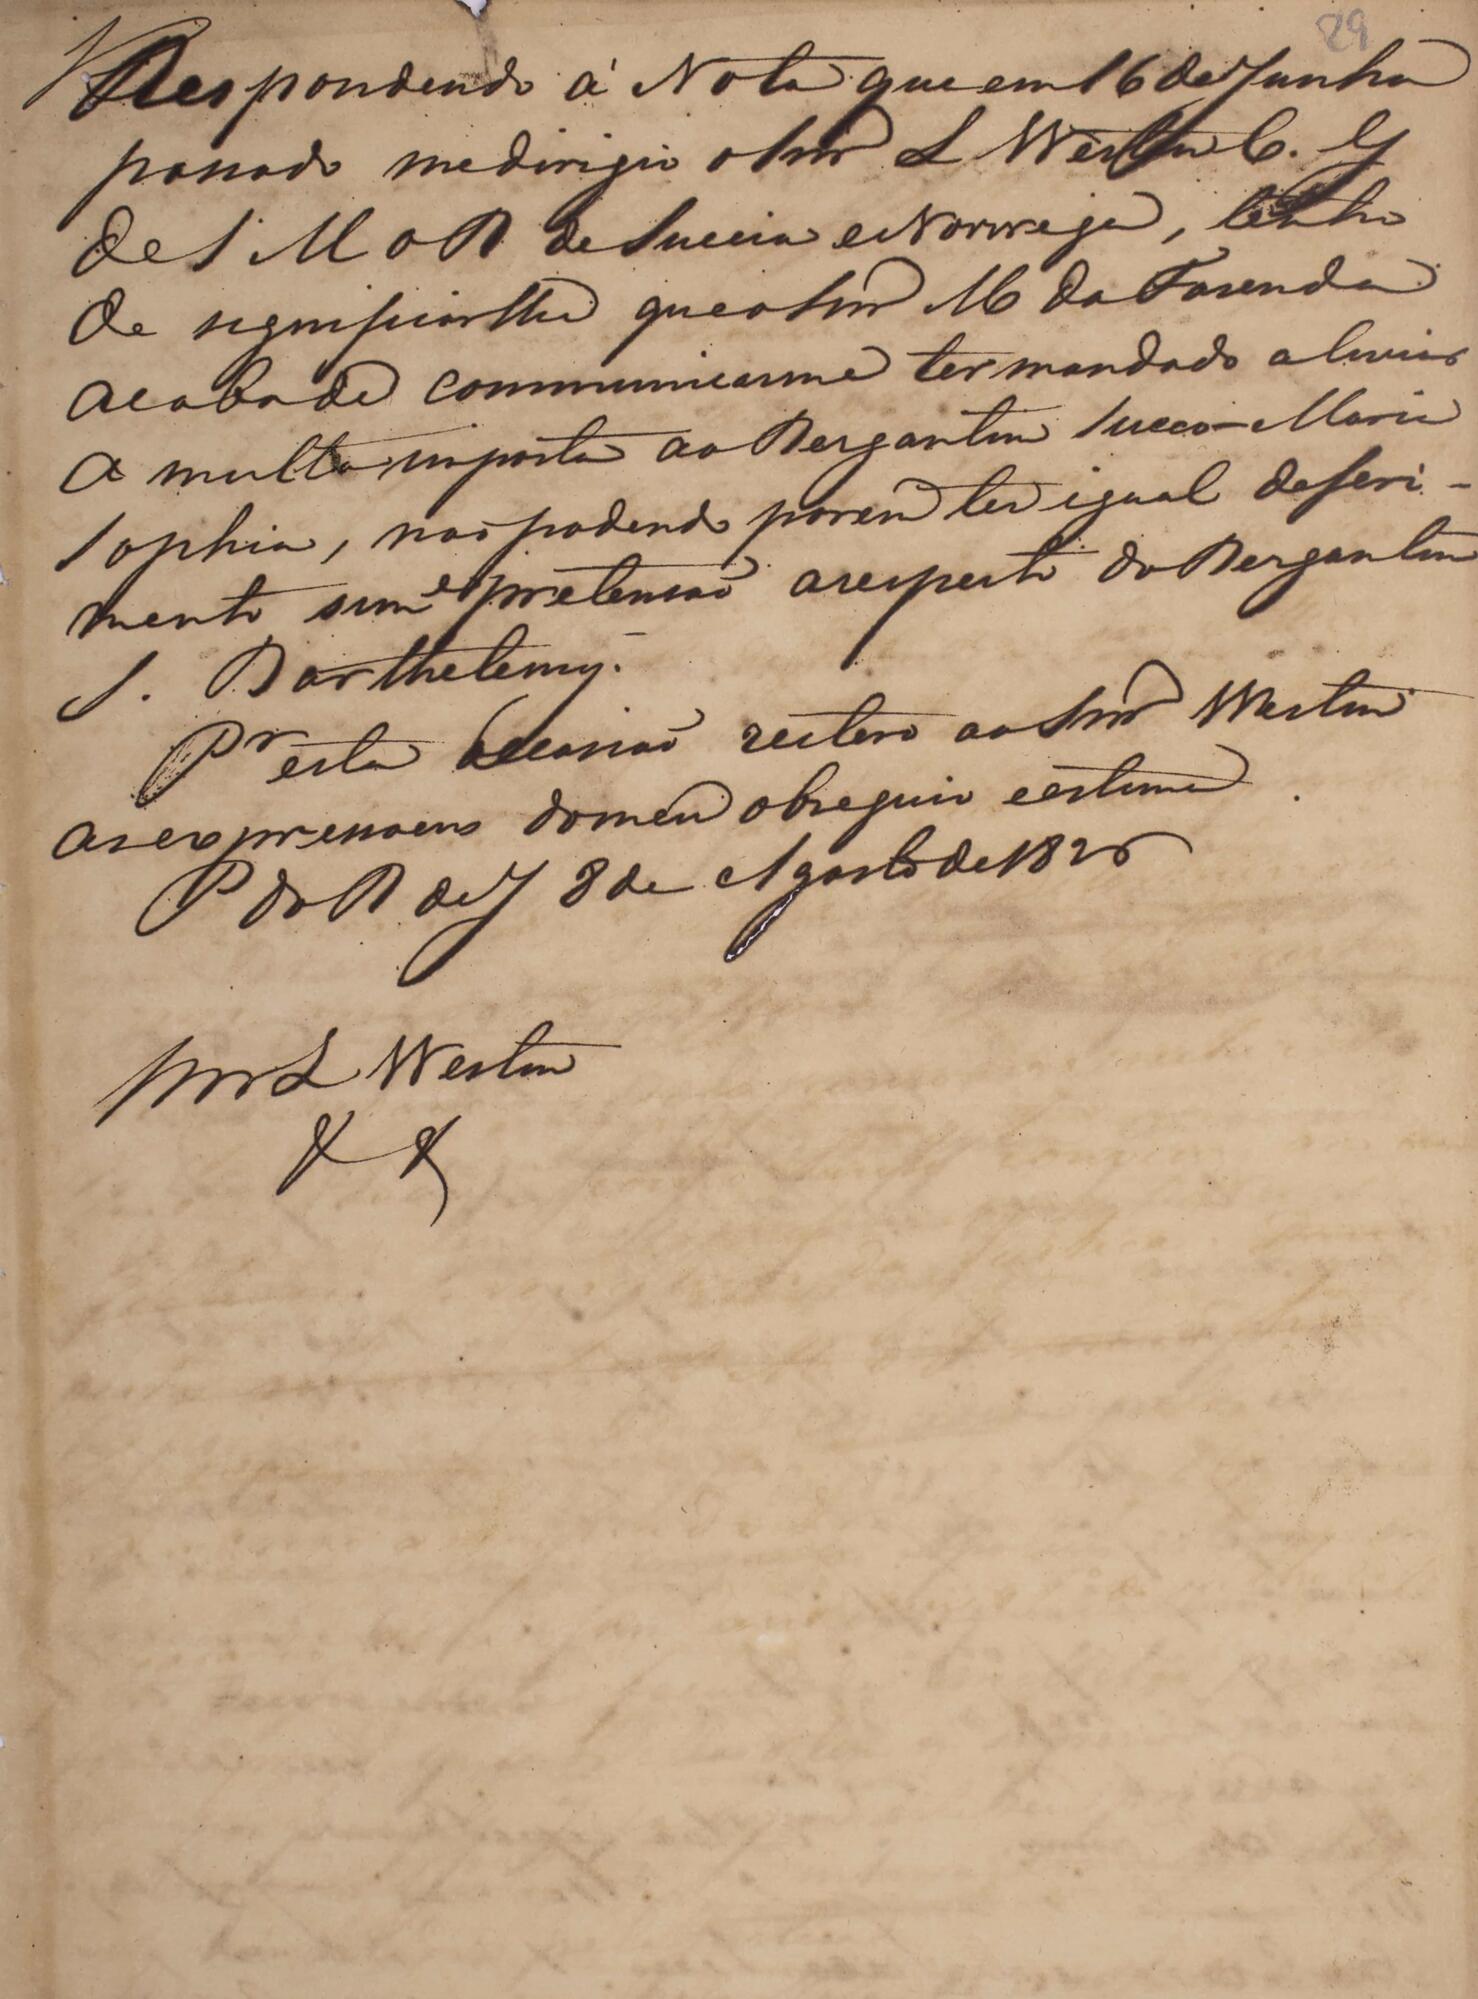 29
Respondendo á Nota que em 16 de Junho
passado me dirigio o Snr L Westin C. G
de S M o R de Suecia e Norwega, tenho
de significarlhe que o Snr M da Fasenda
acaba de communicarme ter mandado aliviar
a multa imposta ao Bergantim Sueco Maria
Sophia, não podendo porem ter igual deferi-
mento sua pretensão a respeito do Bergantim
S. Barthelemy.
Pr esta occasião reitero ao Snr Westin
as expressoens do meu obsequio e estima.
P do R de J 8 de Agosto de 1826
Snr L Westin
&c &c